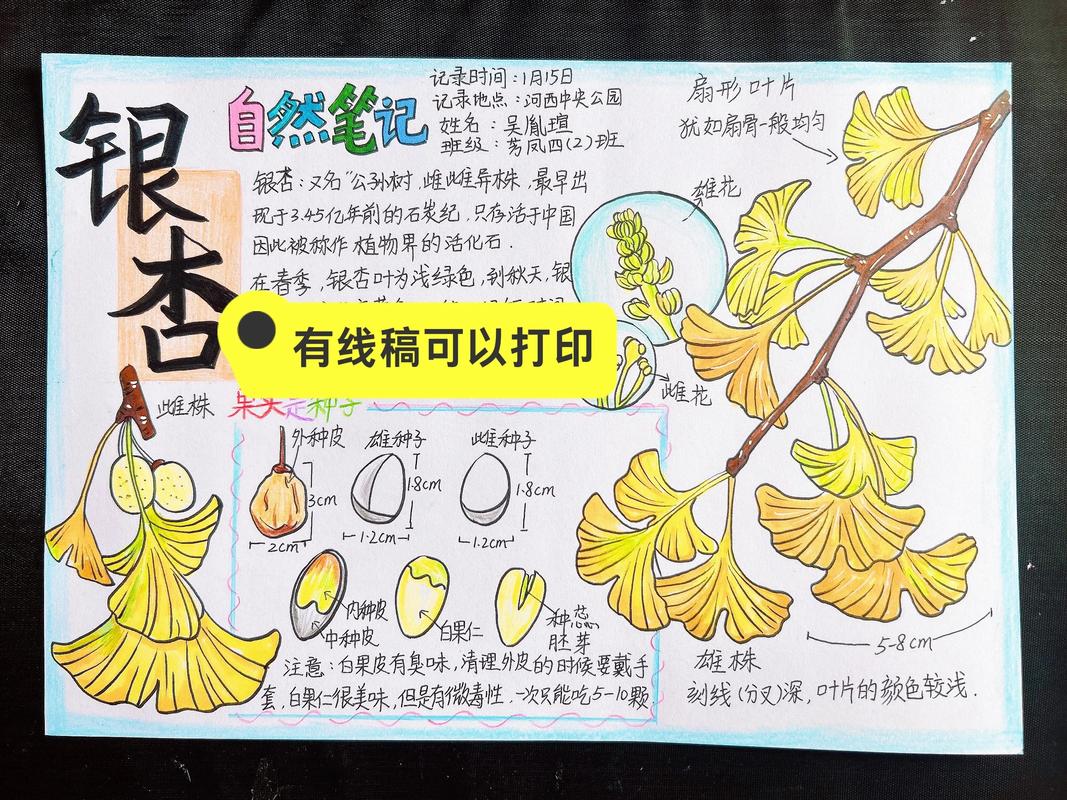 银杏
自然笔记
记录时间：1月15日
记录地点：河西中央公园
姓名：吴胤瑄
班级：芳凤四(2)班
银杏：又名“公孙树，雌雄异株，最早出
现于3.45亿年前的石炭纪，只存活于中国
因此被称作植物界的活化石．
在春季，银杏叶为浅绿色，到秋天，银
有线稿可以打印
扇形叶片
犹如扇骨一般均匀
雄花
雌花
雌株
果实是种子
外种皮
3cm
2cm
雄种子
1.8cm
1.2cm
雌种子
1.8cm
1.2cm
内种皮
中种皮
白果仁
种蕊
胚芽
注意：白果皮有臭味，清理外皮的时候要戴手
套，白果仁很美味，但是有微毒性．一次只能吃5-10颗．
5-8cm
雄株
刻线(分叉)深，叶片的颜色较浅．